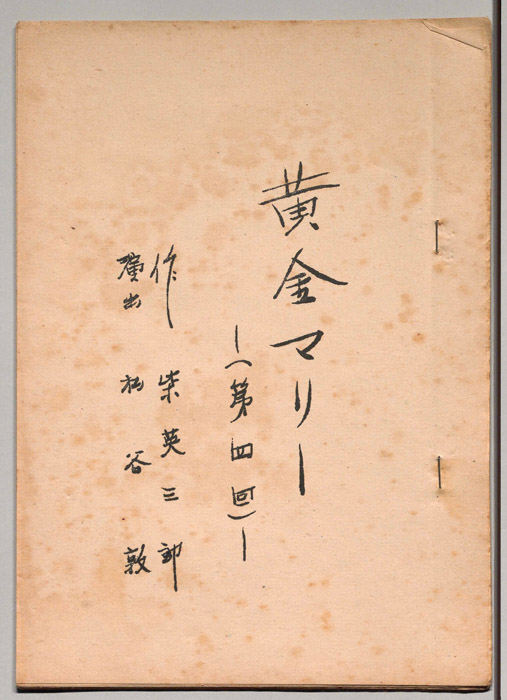 黄金マリー
―(第四回)―
作 柴英三郎
演出 松谷敦